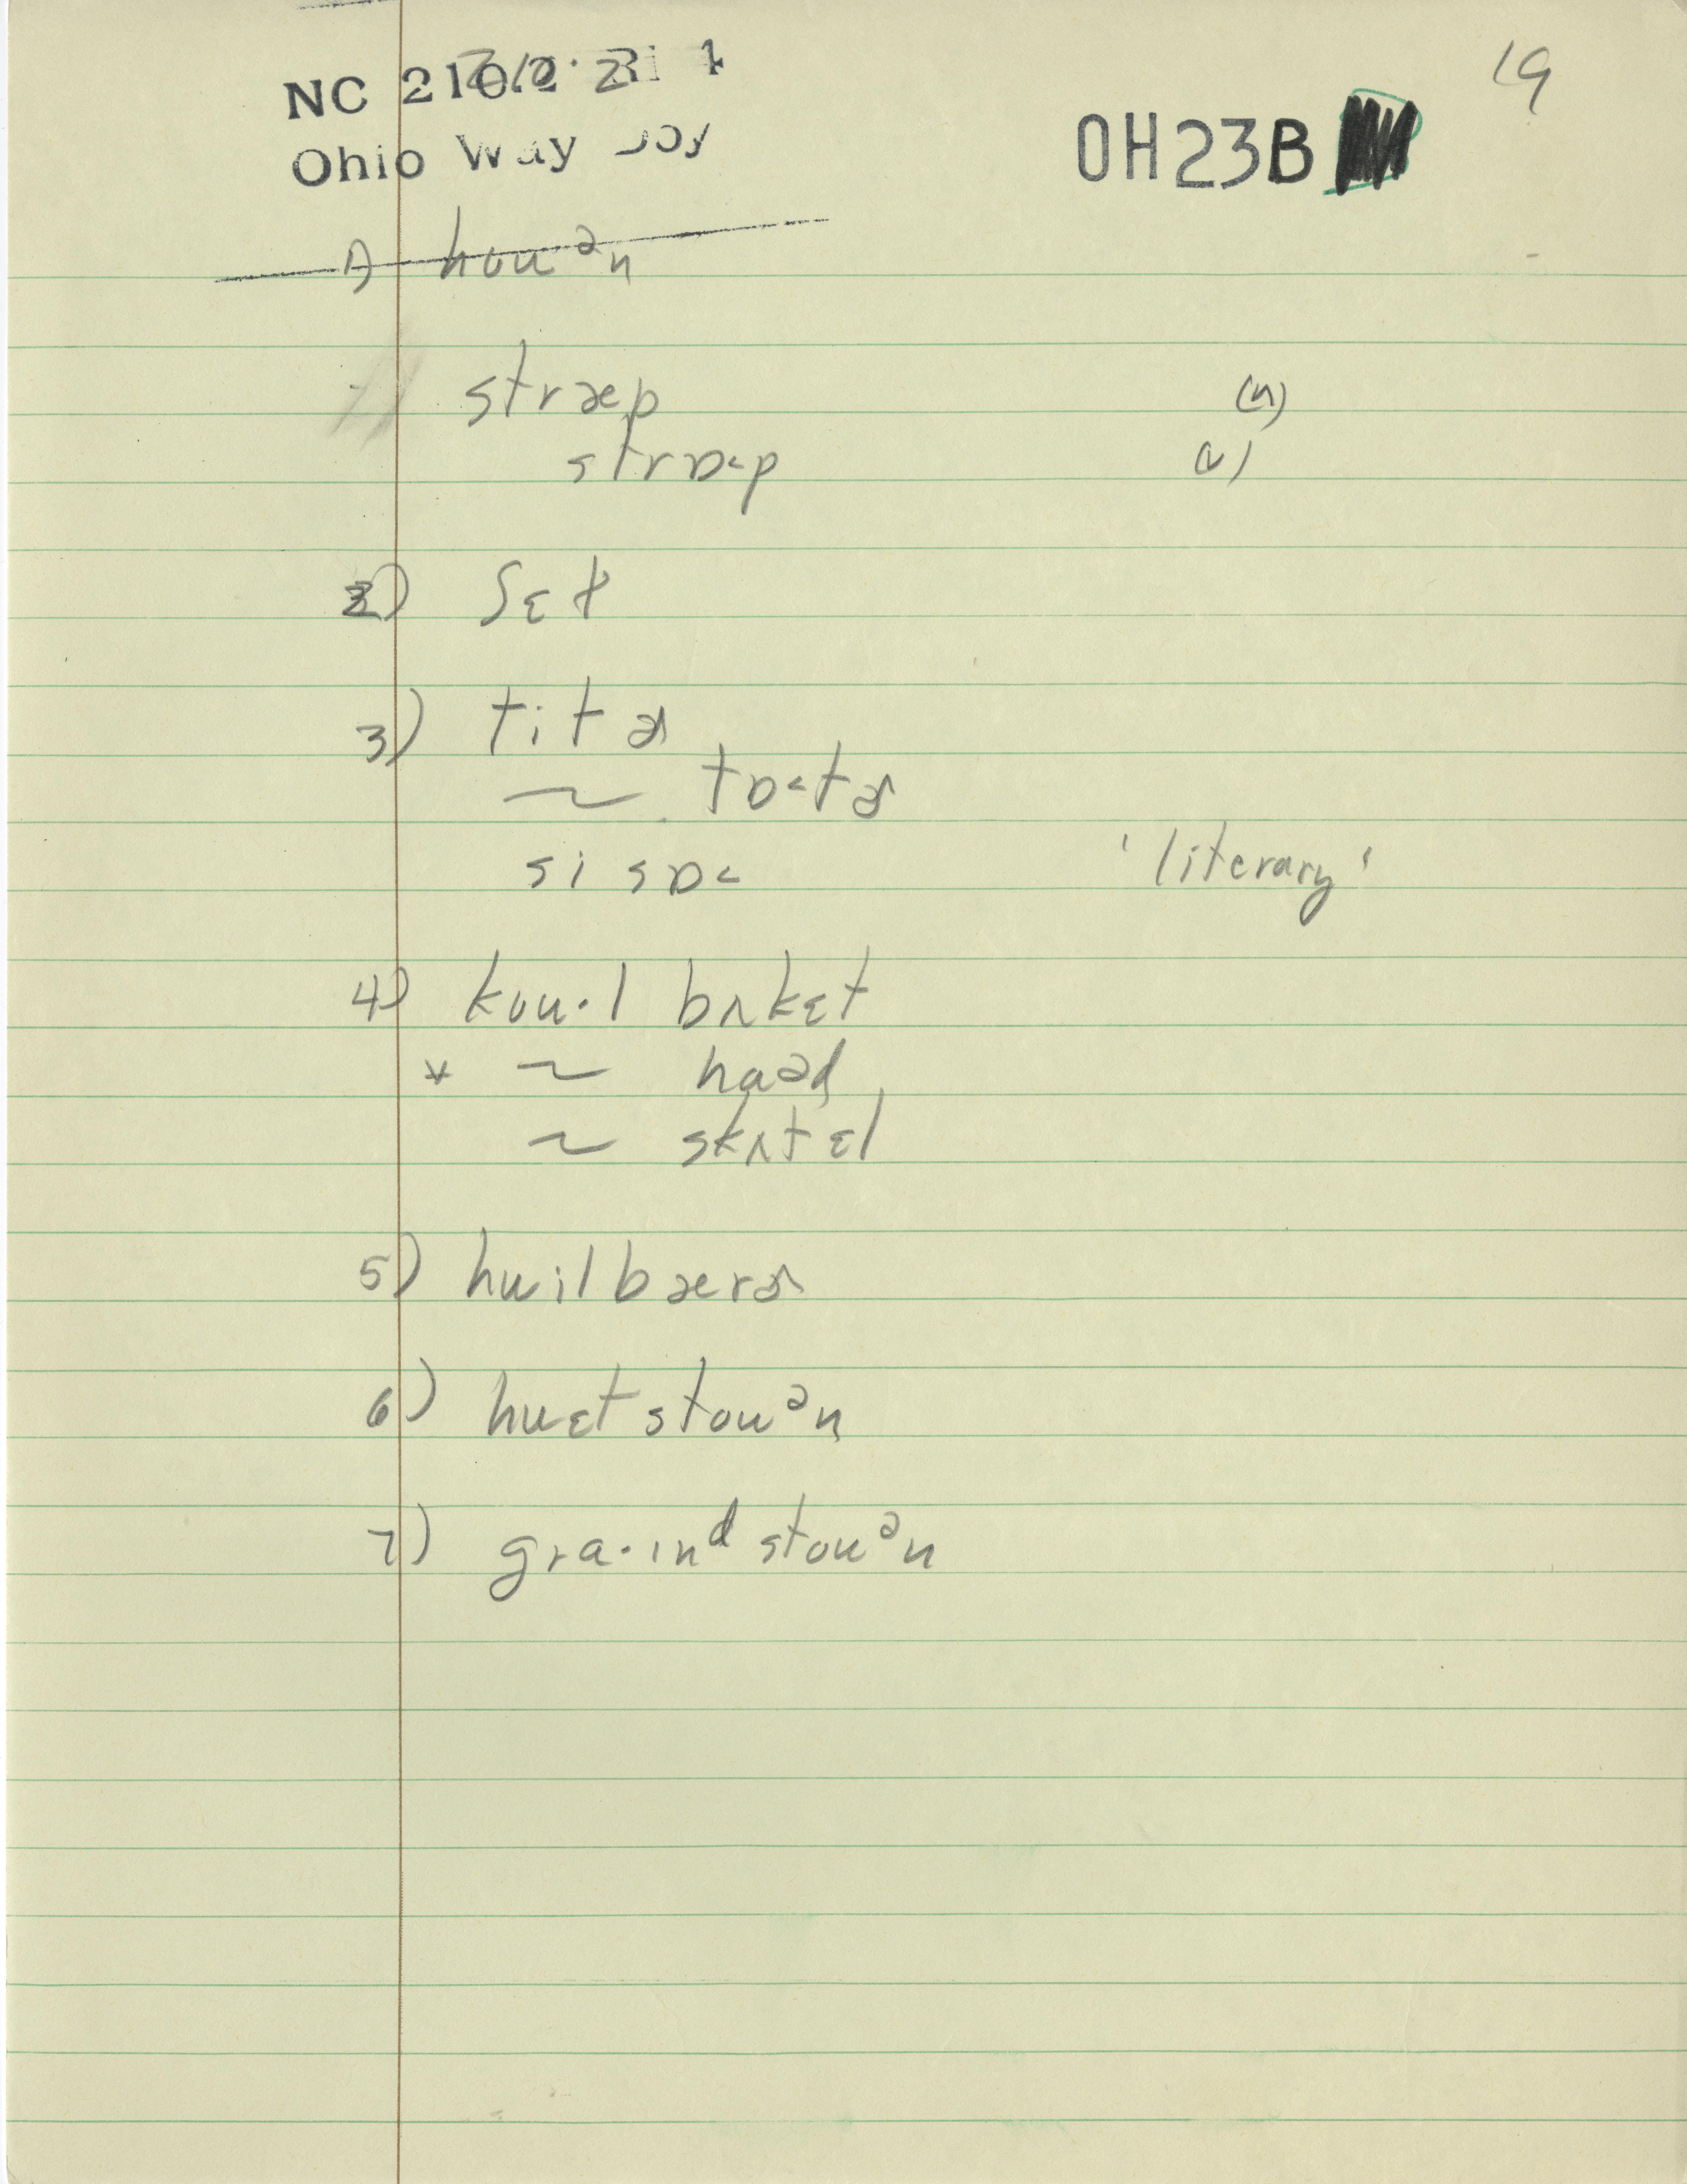 19
NC 210.2.2
Ohio Way Joy
OH23B
1) hoʊᵊn
stræp (n)
strɒ˂p (v)
2) ʃɛt
3) titɚ
~ tɒ˂tɚ
sisɒ˂ 'literary'
4) koʊ·l bʌkɛt
* ~ haəd
~ skʌtɛl
5) hwilbærɚ
6) hwɛtstoʊᵊn
7) gra·ɪnᵈstoʊᵊn